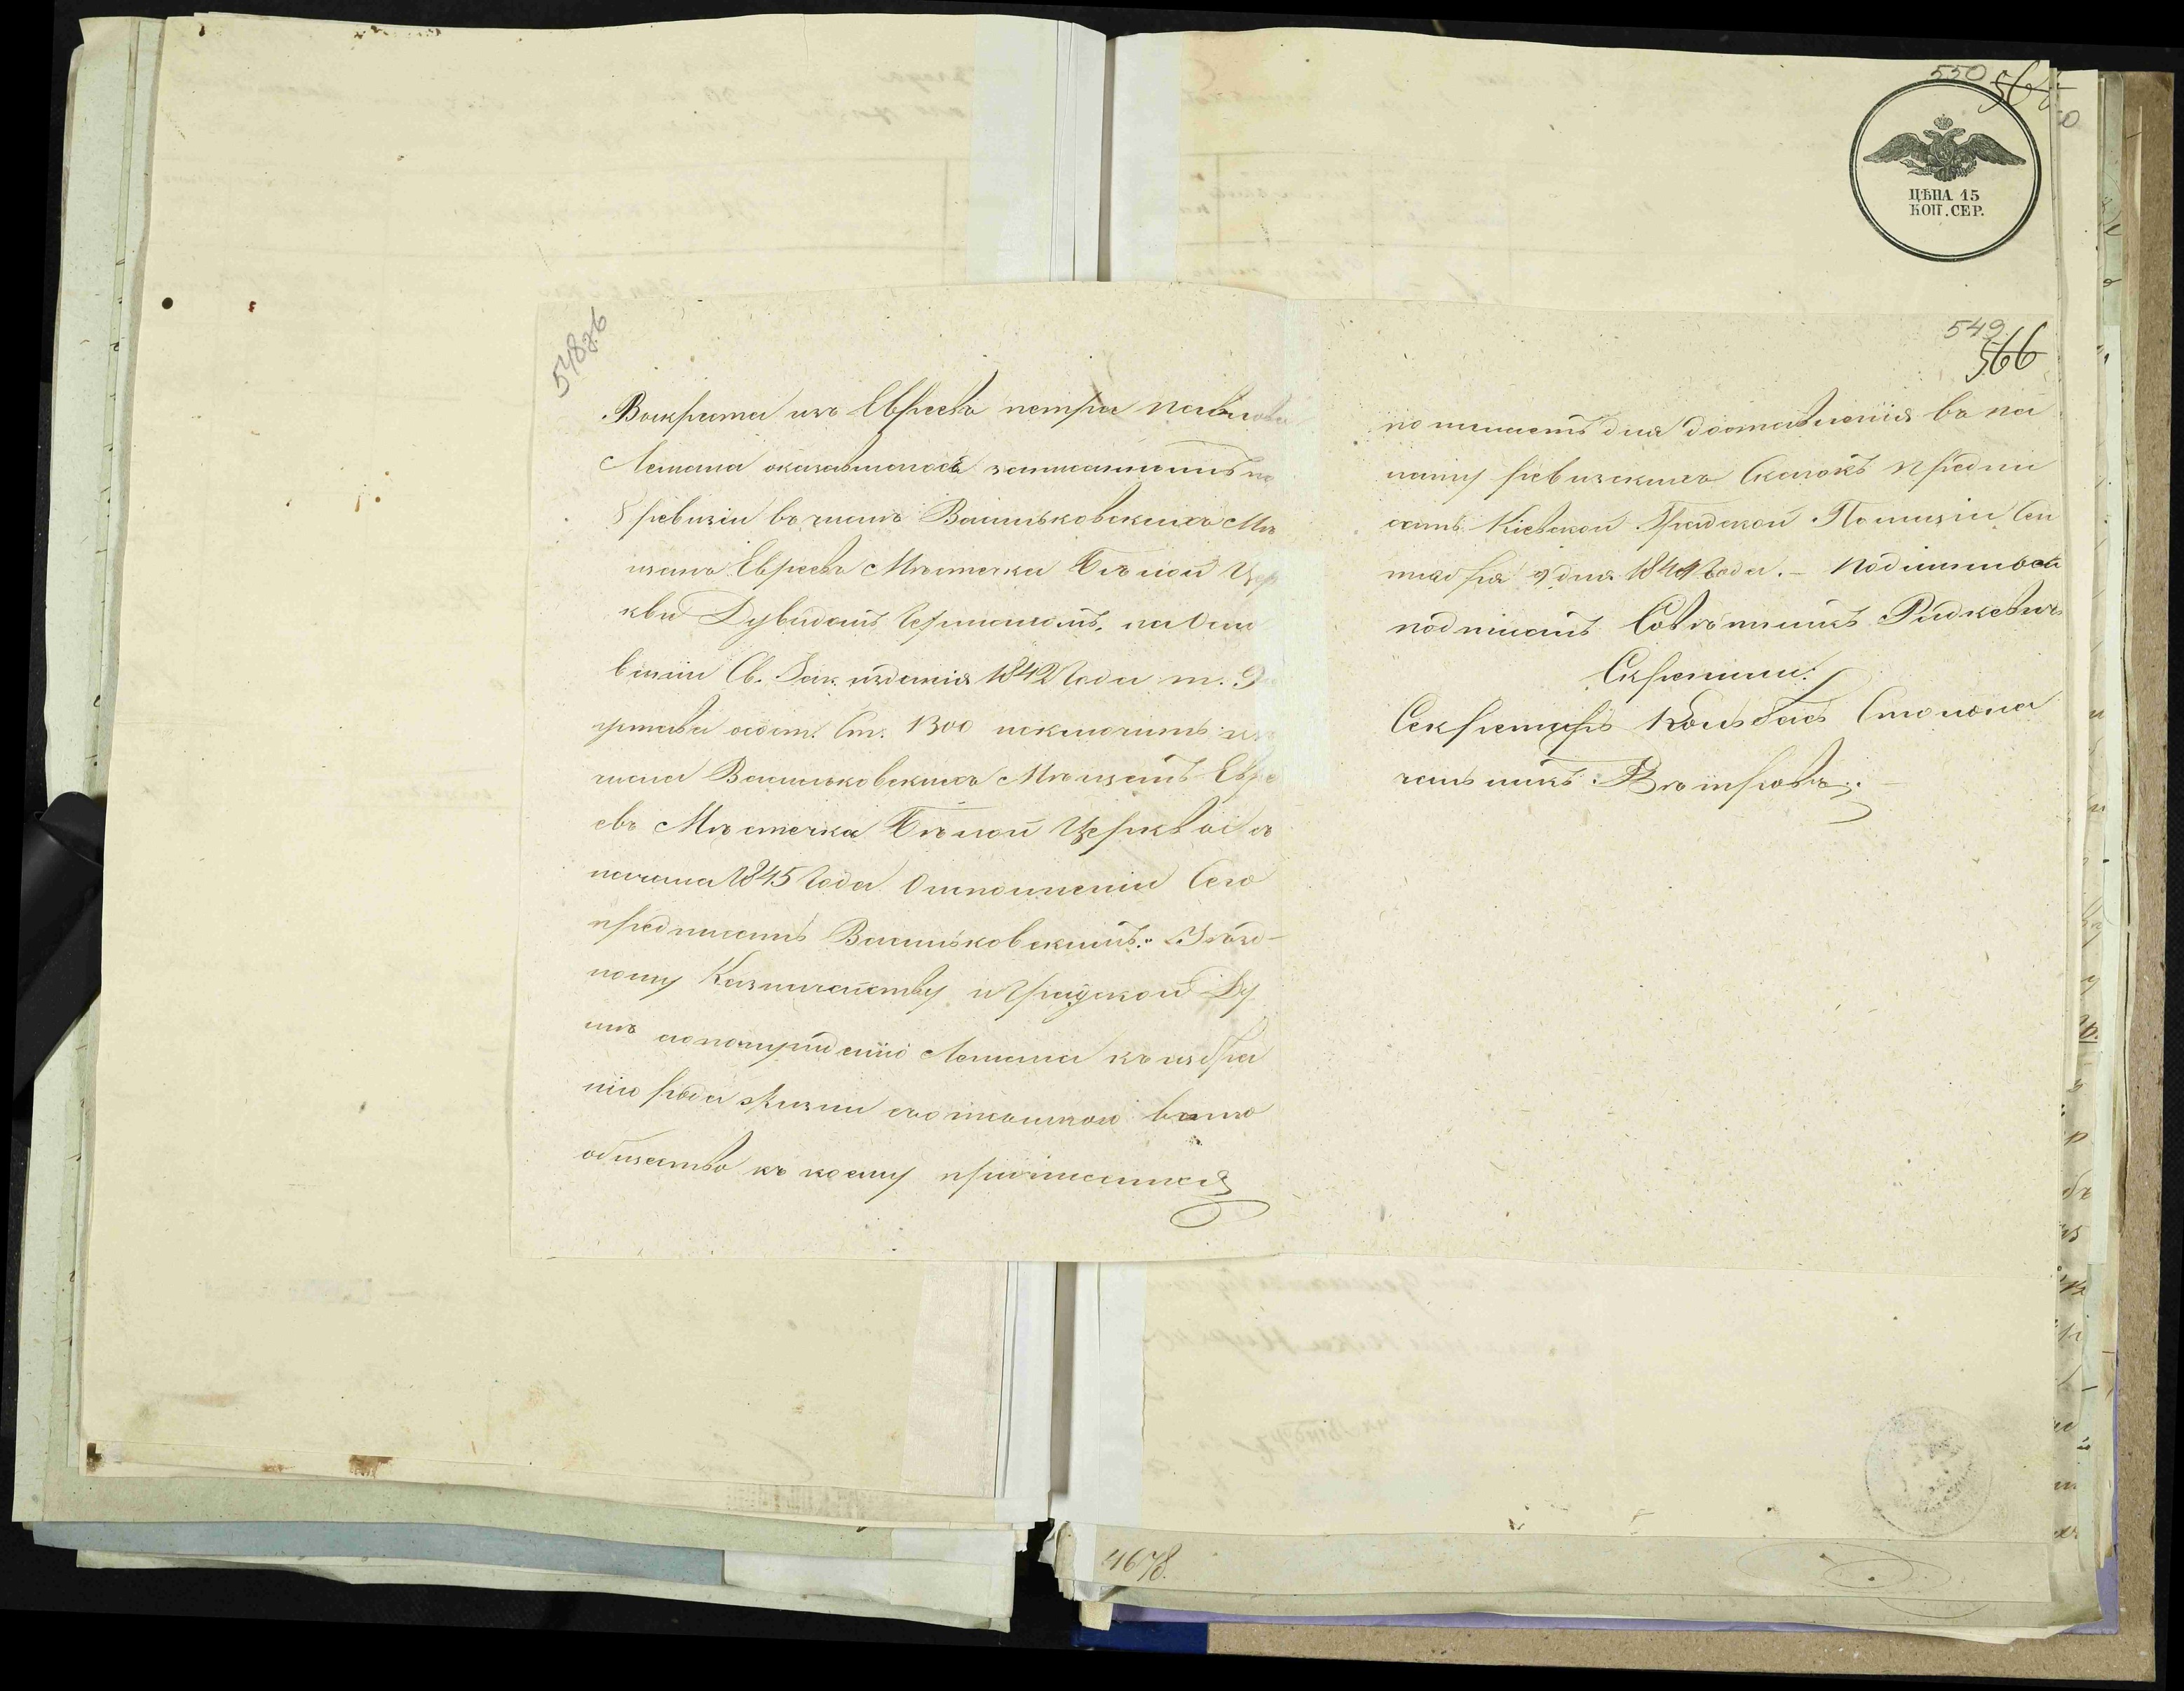 550 566
ЦѢНА 15
КОП. СЕР.
548 об
Выкреста изъ Евреевъ петра павлова
Лемана оказавшагося записаннымъ по
8 ревизіи въ числѣ Васильковскихъ Мѣ
щанъ Евреевъ Мѣстечка Бѣлой Цер
кви Дувидомъ Германомъ, на Осно
ваніи Св. Зак. изданія 1842 Года т. 9
устава о сост. Ст. 1300 исключить изъ
числа Васильковскихъ Мѣщанъ Евре
евъ Мѣстечка Бѣлой Церквѣ съ
начала 1845 Года О исполненіи Сего
предписать Васильковскимъ: Уѣзд-
ному Казначейству и Градской Ду
мѣ а о понужденіи Лемана къ избра
нію рода жизни съ отсылкою въ то
общество къ коему приписанся
549
566
по ишетъ для доставленія въ па
лату ревизскихъ Сказокъ предпи
сать Кіевской Градской Полиціи Сен
тября 9 дня 1844 Года. – Подлинное
подписалъ Совѣтникъ Рудкевичъ
Скрепили:
Секретарь Колбасъ Столона
чальникъ Вѣтровъ.
4678.